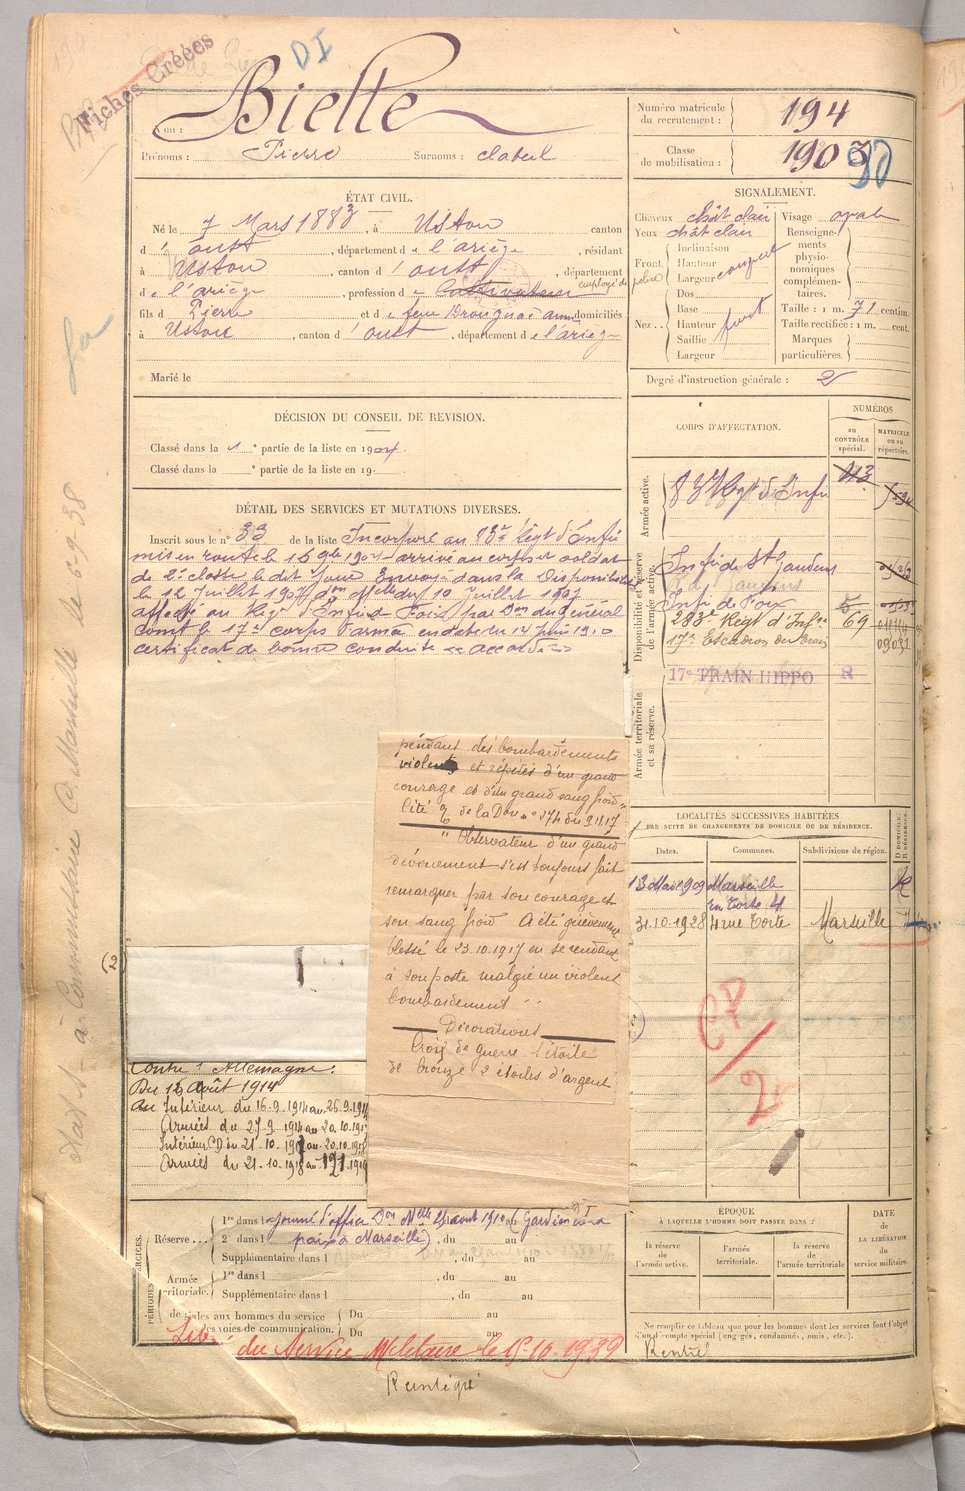 Fiches Créées
DI
Nom : Bielle
Prénoms : Pierre Surnoms :
Numéro matricule du recrutement : 194
Classe de mobilisation : 1903
ÉTAT CIVIL.
Né le 7 Mars 1883, à Ustou canton
d' oust, département de l'ariège, résidant
à Ustou, canton d' oust, département
de l'ariège, profession de Cultivateur employé de
fils de Pierre et de feue domiciliés
à Ustou, canton d' oust, département de l'ariège
Marié le
SIGNALEMENT.
Cheveux chât clair Visage ovale
Yeux chât clair
Front Inclinaison Hauteur Largeur
Nez Dos Base Hauteur Saillie Largeur fort
Renseignements physionomiques complémentaires.
Taille : 1 m. 71 centim.
Taille rectifiée : 1 m. cent.
Marques particulières.
Degré d'instruction générale : 2
DÉCISION DU CONSEIL DE REVISION.
Classé dans la 1e partie de la liste en 1904.
Classé dans la e partie de la liste en 19
DÉTAIL DES SERVICES ET MUTATIONS DIVERSES.
Inscrit sous le n° 33 de la liste Incorporé au 83e Regt d'Infie
mis en route le 15 9bre 1904 arrivé au corps et soldat
de 2e classe le dit jour Envoyé dans la Disponibilité
le 12 Juillet 1907 du 10 Juillet 1907
affecté au Regt d'Infie de Foix par Don du général
Comt le 17e corps d'armée en date du 14 Juin 1910
certificat de bonne conduite « accordé »
CORPS D'AFFECTATION.
NUMÉROS
AU CONTRÔLE spécial.
MATRICULE OU AU répertoire.
Armée active.
83e Regt d'Infie 113
Disponibilité et réserve de l'armée active.
Infie de St Gaudens
Infie de Foix 5
283e Regt d'Infie 69
17e Escadron du train 09031
17e TRAIN HIPPO R
Armée territoriale et sa réserve.
pendant des bombardements
violents et répétés d'un grand
courage et d'un grand sang froid"
Cité de la Don n° 274 du 9.11.17
"Observateur d'un grand
dévouement s'est toujours fait
remarquer par son courage et
son sang froid A été grièvement
blessé le 23.10.1917 en se rendant
à son poste malgré un violent
bombardement"
Décorations
Croix de guerre 1 étoile
de bronze 2 étoiles d'argent
LOCALITÉS SUCCESSIVES HABITÉES
PAR SUITE DE CHANGEMENTS DE DOMICILE OU DE RÉSIDENCE.
Dates. Communes. Subdivisions de région. D DOMICILE. R RÉSIDENCE.
13 Mars 1909 Marseille R
rue Torte 4
31.10.1928 4 rue Torte Marseille
CP/2
(2)
Contre l'Allemagne :
Du 12 Août 1914
Au Intérieur du 16-9-1914 au 26-9-1914
Armées du 27-9 1914 au 20.10.1917
Intérieur CD du 21-10-1917 au 20.10.1918
Armées du 21-10-1918 au
PÉRIODES D'EXERCICES.
Réserve ... 1re dans l ajourné d'office Don Melle 24 aout 1910 au (Gardien de la
2e dans l paix à Marseille), du au
Supplémentaire dans l , du au
Armée territoriale. 1re dans l , du au
Supplémentaire dans l , du au
spéciales aux hommes du service des voies de communication. Du au
Du au
Libéré du Service Militaire le 15-10-1932
Réintégré
ÉPOQUE
À LAQUELLE L'HOMME DOIT PASSER DANS :
la réserve de l'armée active.
l'armée territoriale.
la réserve de l'armée territoriale
DATE de LA LIBÉRATION du service militaire.
Ne remplir ce tableau que pour les hommes dont les services font l'objet
d'un compte spécial (engagés, condamnés, omis, etc.).